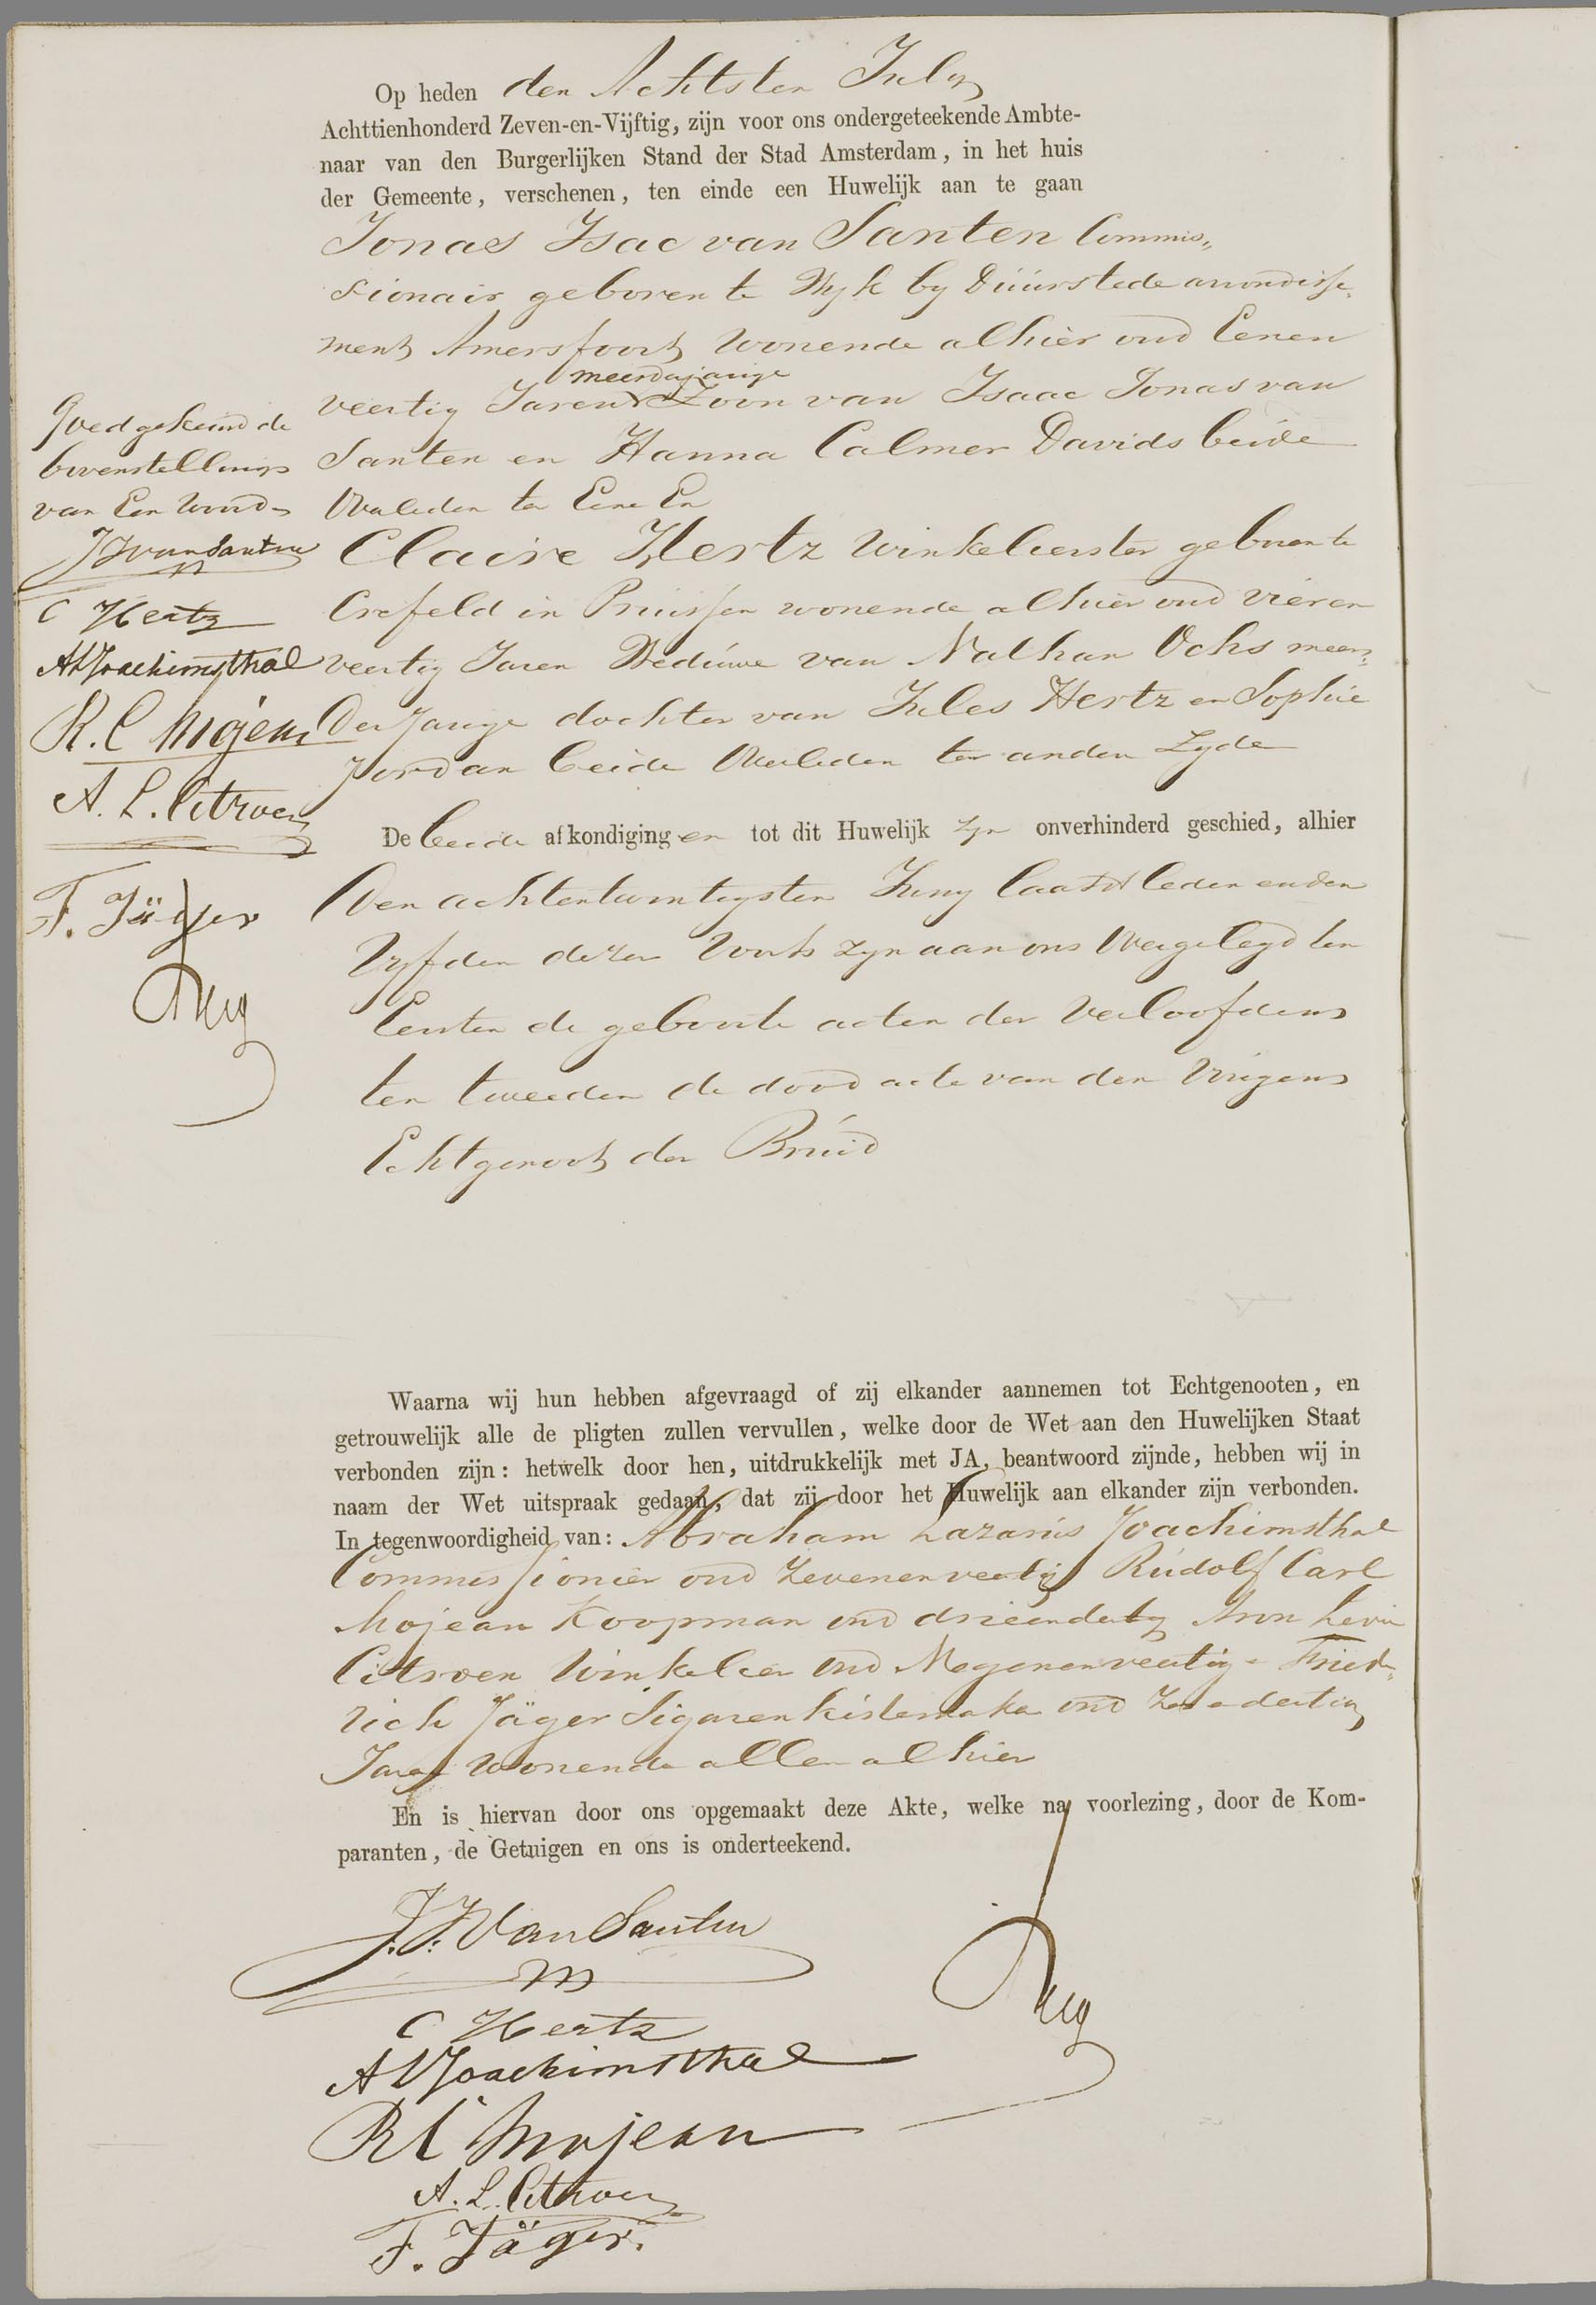 Op heden den Achtsten July
Achttienhonderd Zeven-en-Vijftig, zijn voor ons ondergeteekende Ambte-
naar van den Burgerlijken Stand der Stad Amsterdam, in het huis
der Gemeente, verschenen, ten einde een Huwelijk aan te gaan
Jonas Isac van Santen Commis„
sionair geboren te Wyk by Duurstede arrondisse„
ment Amersfoort wonende alhier oud Eenen
meerderjarige
veertig Jaren Zoon van Isaac Jonas van
Santen en Hanna Calmer Davids beide
Overleden ter Eene En
Claire Hertz Winkelierster geboren te
Crefeld in Pruissen wonende alhier oud vieren
veertig Jaren Weduwe van Nathan Ochs meer„
Derjarige dochter van Jules Hertz en Sophie
Jordan beide Overleden ter andere Zyde
De beide afkondigingen tot dit Huwelijk zyn onverhinderd geschied, alhier
Den achtentwintigsten Juny laatstleden en den
Vyfden dezer Voorts zyn aan ons Overgelegd ten
Eersten de geboorte acten der Verloofdens
ten tweeden de dood acte van den Vorigens
Echtgenoot der Bruid
Waarna wij hun hebben afgevraagd of zij elkander aannemen tot Echtgenooten, en
getrouwelijk alle de pligten zullen vervullen, welke door de Wet aan den Huwelijken Staat
verbonden zijn: hetwelk door hen, uitdrukkelijk met JA, beantwoord zijnde, hebben wij in
naam der Wet uitspraak gedaan, dat zij door het Huwelijk aan elkander zijn verbonden.
In tegenwoordigheid van: Abraham Lazarus Joachimsthal
Commissionier oud Zevenenveertig Rudolf Carl
Mojean Koopman oud drieendertig Aron Levie
Citroen Winkelier oud Negenenveertig Fried„
rich Jäger Sigarenkistemaker oud
Jaren wonende allen alhier
En is hiervan door ons opgemaakt deze Akte, welke na voorlezing, door de Kom-
paranten, de Getuigen en ons is onderteekend.
J.I. Van Santen
C Hertz
A L Joachimsthal
R C Mojean
A. L. Citroen
F. Jäger.
Goedgekeurd de
bovenstelling
van Een Woord
J I van Santen
C Hertz
A L Joachimsthal
R. C Mojean
A. L. Citroen
F. Jäger